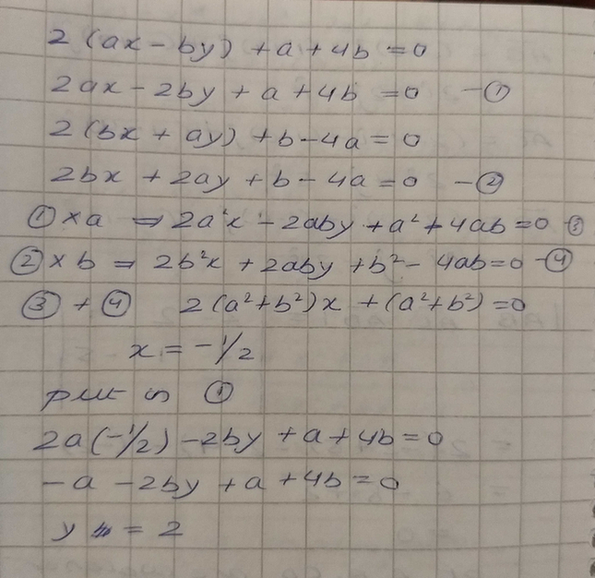 2 (ax - by) + a + 4b = 0
2ax - 2by + a + 4b = 0 - ①
2 (bx + ay) + b - 4a = 0
2bx + 2ay + b - 4a = 0 - ②
① × a ⇒ 2a²x - 2aby + a² + 4ab = 0 ③
② × b ⇒ 2b²x + 2aby + b² - 4ab = 0 - ④
③ + ④ 2 (a² + b²) x + (a² + b²) = 0
x = -1/2
put in ①
2a (-1/2) - 2by + a + 4b = 0
-a - 2by + a + 4b = 0
y = 2